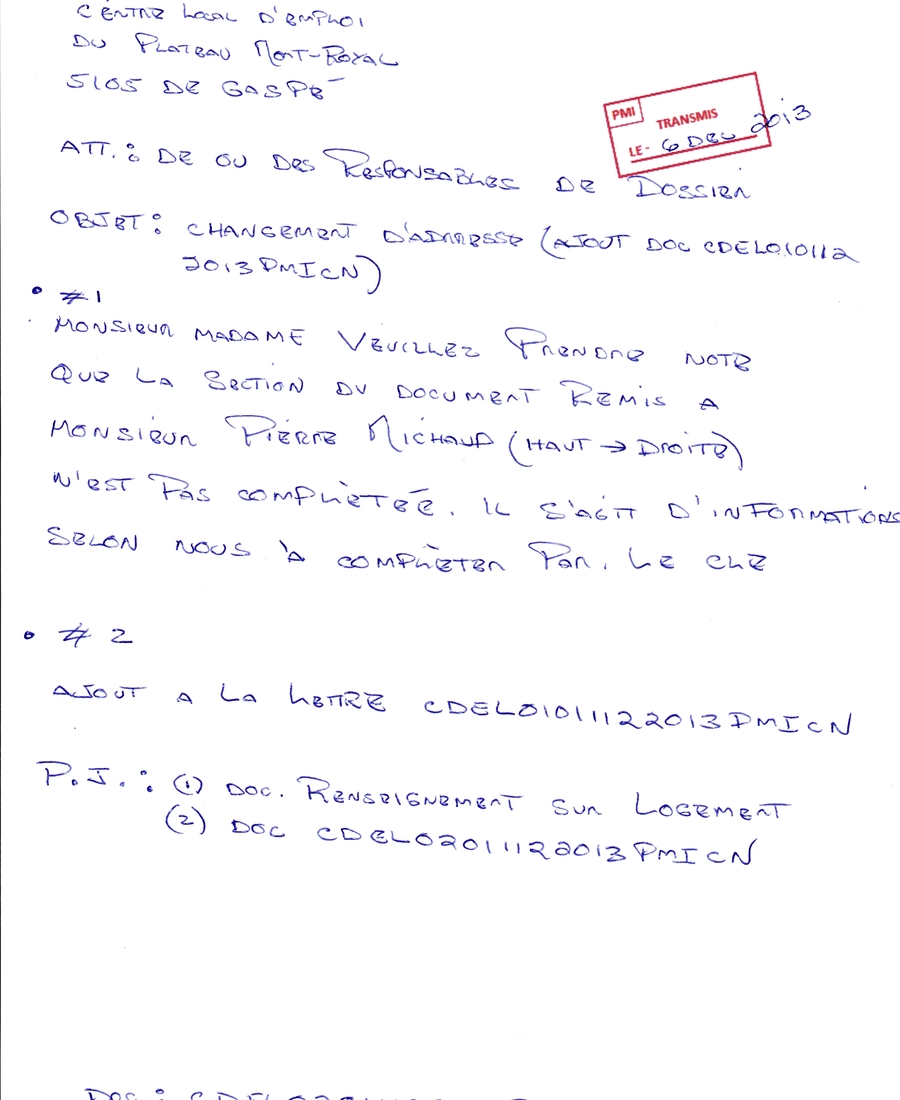 CENTRE LOCAL D'EMPLOI
DU PLATEAU MONT-ROYAL
5105 DE GASPÉ
PMI
TRANSMIS
LE - 6 DEC 2013
ATT. : DE OU DES RESPONSABLES DE DOSSIER
OBJET : CHANGEMENT D'ADRESSE (AJOUT DOC CDEL010112
2013PMICN)
• #1
MONSIEUR MADAME VEUILLEZ PRENDRE NOTE
QUE LA SECTION DU DOCUMENT REMIS A
MONSIEUR PIERRE MICHAUD (HAUT → DROITE)
N'EST PAS COMPLÈTÉE. IL S'AGIT D'INFORMATIONS
SELON NOUS À COMPLÈTER PAR. LE CLE
• # 2
AJOUT A LA LETTRE CDEL01011122013PMICN
P.J. : (1) DOC. RENSEIGNEMENT SUR LOGEMENT
(2) DOC CDEL02011122013PMICN